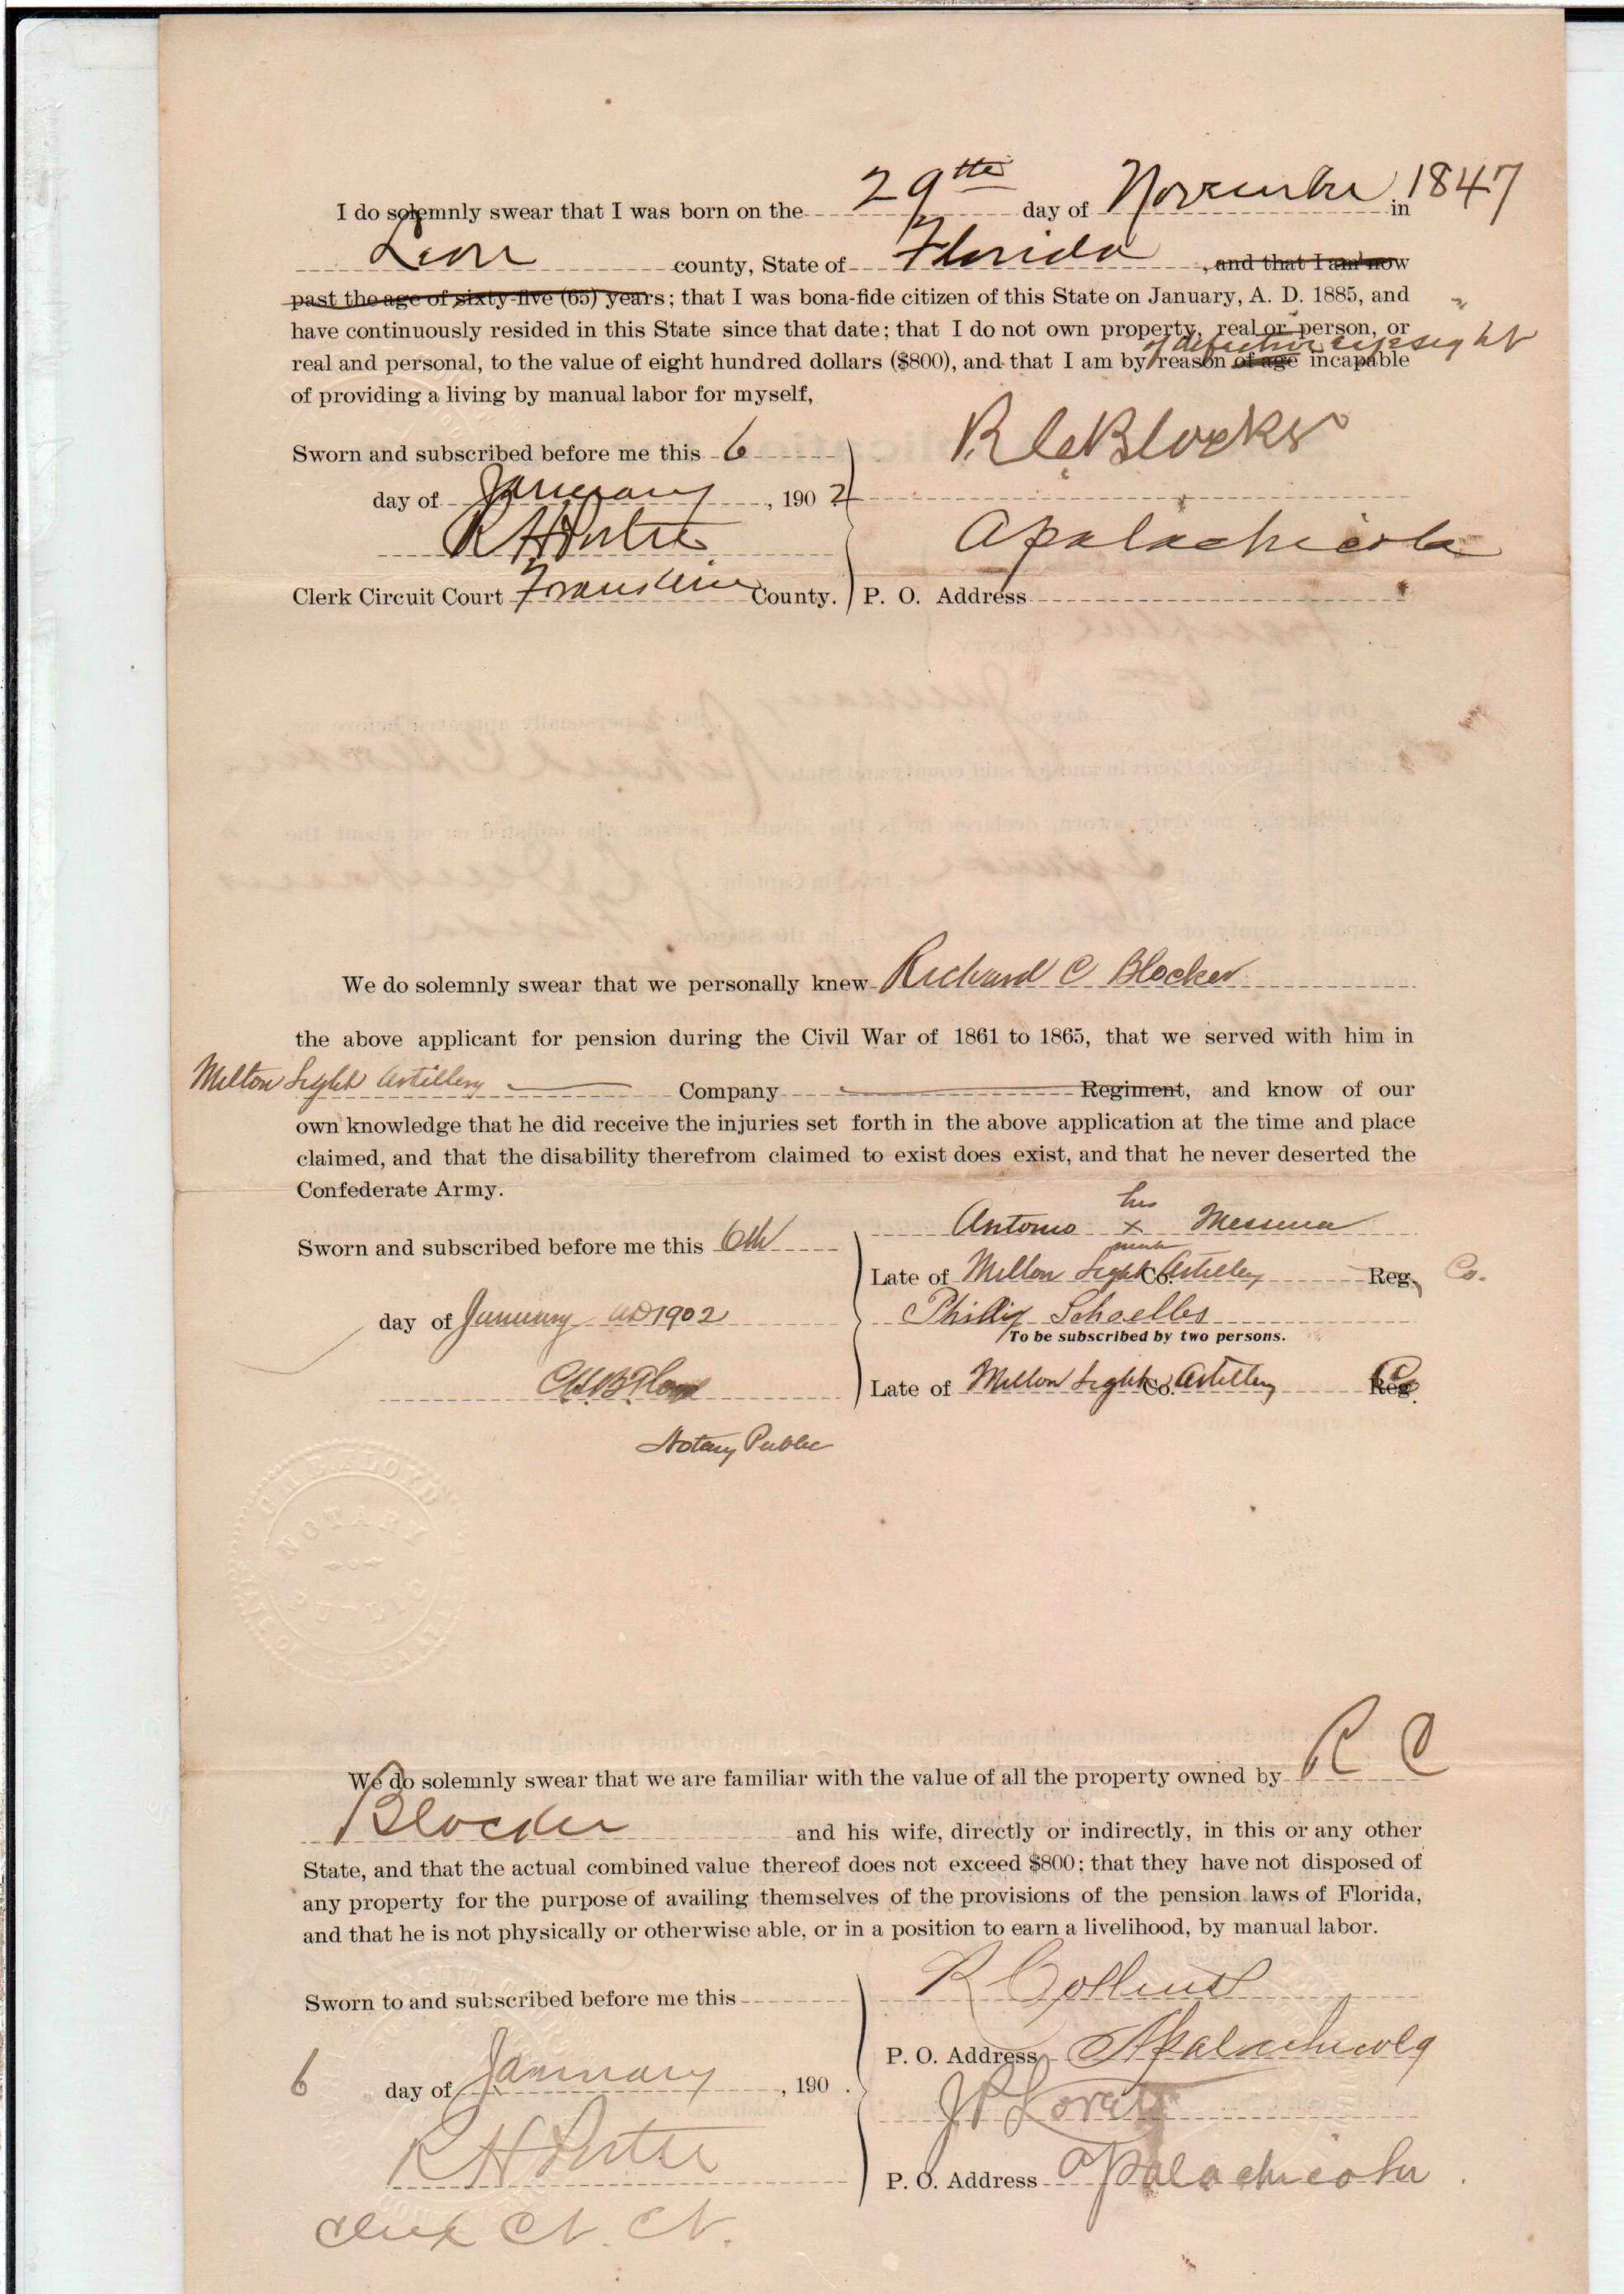 I do solemnly swear that I was born on the 29th day of November in 1847
Leon county, State of Florida, and that I am now
past the age of sixty-five (65) years; that I was bona-fide citizen of this State on January, A. D. 1885, and
have continuously resided in this State since that date; that I do not own property, real or person, or
of defective eyesight
real and personal, to the value of eight hundred dollars ($800), and that I am by reason of age incapable
of providing a living by manual labor for myself,
Sworn and subscribed before me this 6
R C Blocker
day of January, 1902
R H Porter
Apalachicola
Clerk Circuit Court Franklin County. P. O. Address
We do solemnly swear that we personally knew Richard C Blocker
the above applicant for pension during the Civil War of 1861 to 1865, that we served with him in
Milton Light Artillery Company Regiment, and know of our
own knowledge that he did receive the injuries set forth in the above application at the time and place
claimed, and that the disability therefrom claimed to exist does exist, and that he never deserted the
Confederate Army.
his
Antonio x Messina
mark
Sworn and subscribed before me this 6th
Late of Milton Light Co. Artillery Reg. Co.
day of January AD 1902
Phillip Schoelles
To be subscribed by two persons.
Late of Milton Light Co. Artillery Reg. Co
Notary Public
NOTARY
PUBLIC
We do solemnly swear that we are familiar with the value of all the property owned by R C
Blocker and his wife, directly or indirectly, in this or any other
State, and that the actual combined value thereof does not exceed $800; that they have not disposed of
any property for the purpose of availing themselves of the provisions of the pension laws of Florida,
and that he is not physically or otherwise able, or in a position to earn a livelihood, by manual labor.
Sworn to and subscribed before me this
R Collins
P. O. Address Apalachicola
6 day of January, 190 .
R H Porter
P. O. Address Apalachicola
Clerk Ct. Ct.